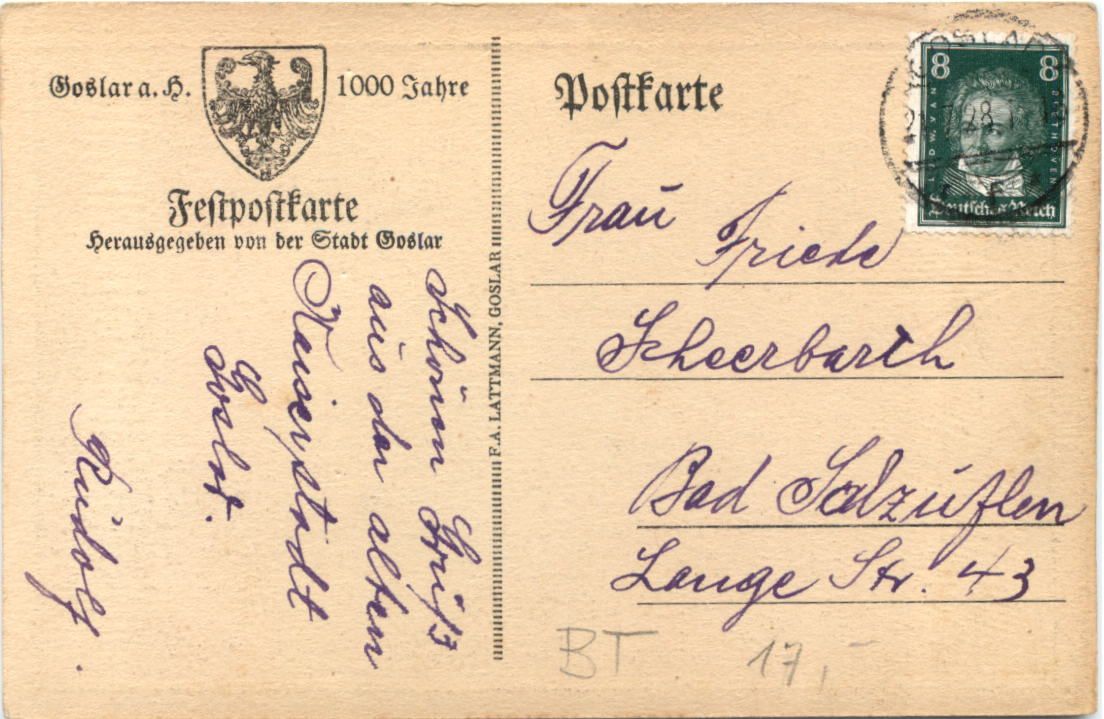 Goslar a. H.
1000 Jahre
Festpostkarte
Herausgegeben von der Stadt Goslar
Schönen Gruß
aus der alten
Kaiserstadt
Goslar.
Rudolf.
F. A. LATTMANN, GOSLAR
Postkarte
8 8
LUDW. V. VAN BEETHOVEN
Deutsches Reich
GOSLAR
28
Frau
Friede
Scheerbarth
Bad Salzuflen
Lange Str. 43
BT 17,-